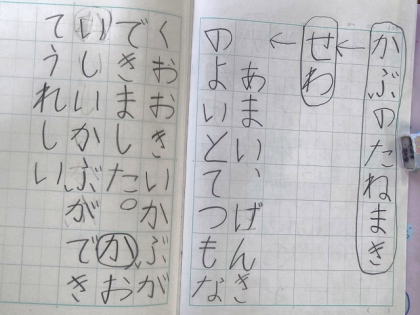 かぶのたねまき
←
せわ
←
あまい、げんき
のよいとてつもな
くおおきいかぶが
できました。かお
いしいかぶができ
てうれしい